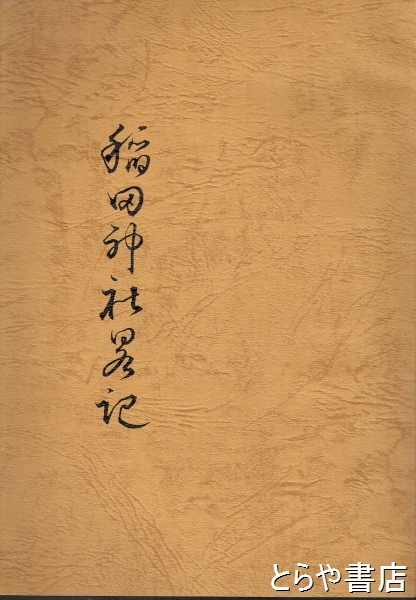 稲田神社畧記
とらや書店